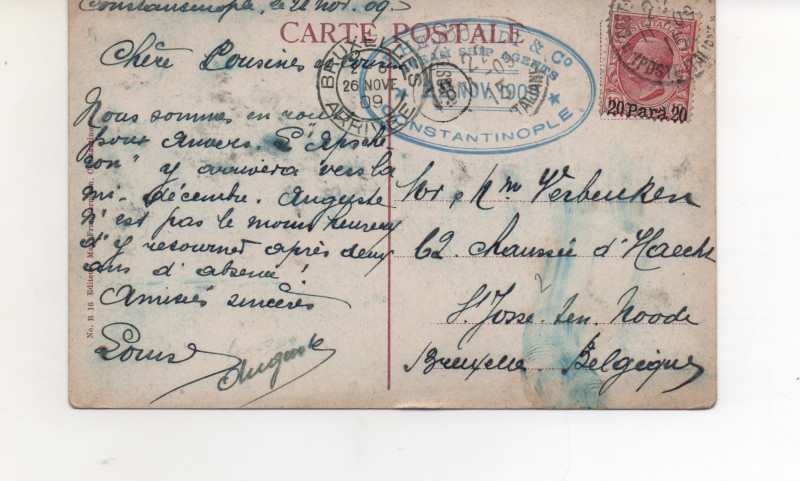 Constantinople, le 22 Nov. 09.
CARTE POSTALE
Chère Cousine et Cousin
Nous sommes en route
pour Anvers. L'"Apsche
ron" y arrivera vers la
mi-décembre. Auguste
n'est pas le moins heureux
d'y retourner après deux
ans d'absence!
Amitiés sincères
Louis
Auguste
BRUXELLES
26 NOVE
09
ARRIVEE
& Co
STEAM SHIP AGENTS
NOV 1909
CONSTANTINOPLE
20 Para 20
Verbeuken
62. Chaussée d'Haecht
St Josse-ten-Noode
Bruxelles. Belgique
No. B 16 Editeur Max Fruchtermann, Constantinople